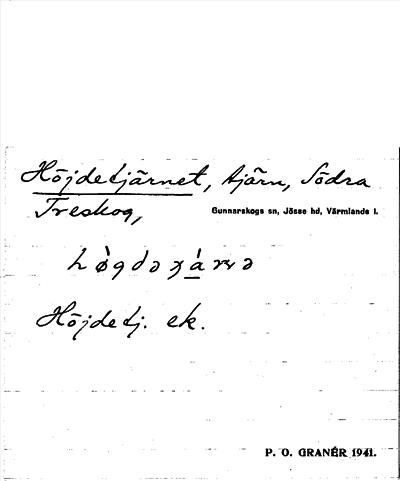 Höjdetjärnet, tjärn, Södra
Treskog,
Gunnarskogs sn, Jösse hd, Värmlands l.
Höjdetj. ek.
P. O. GRANÉR 1941.